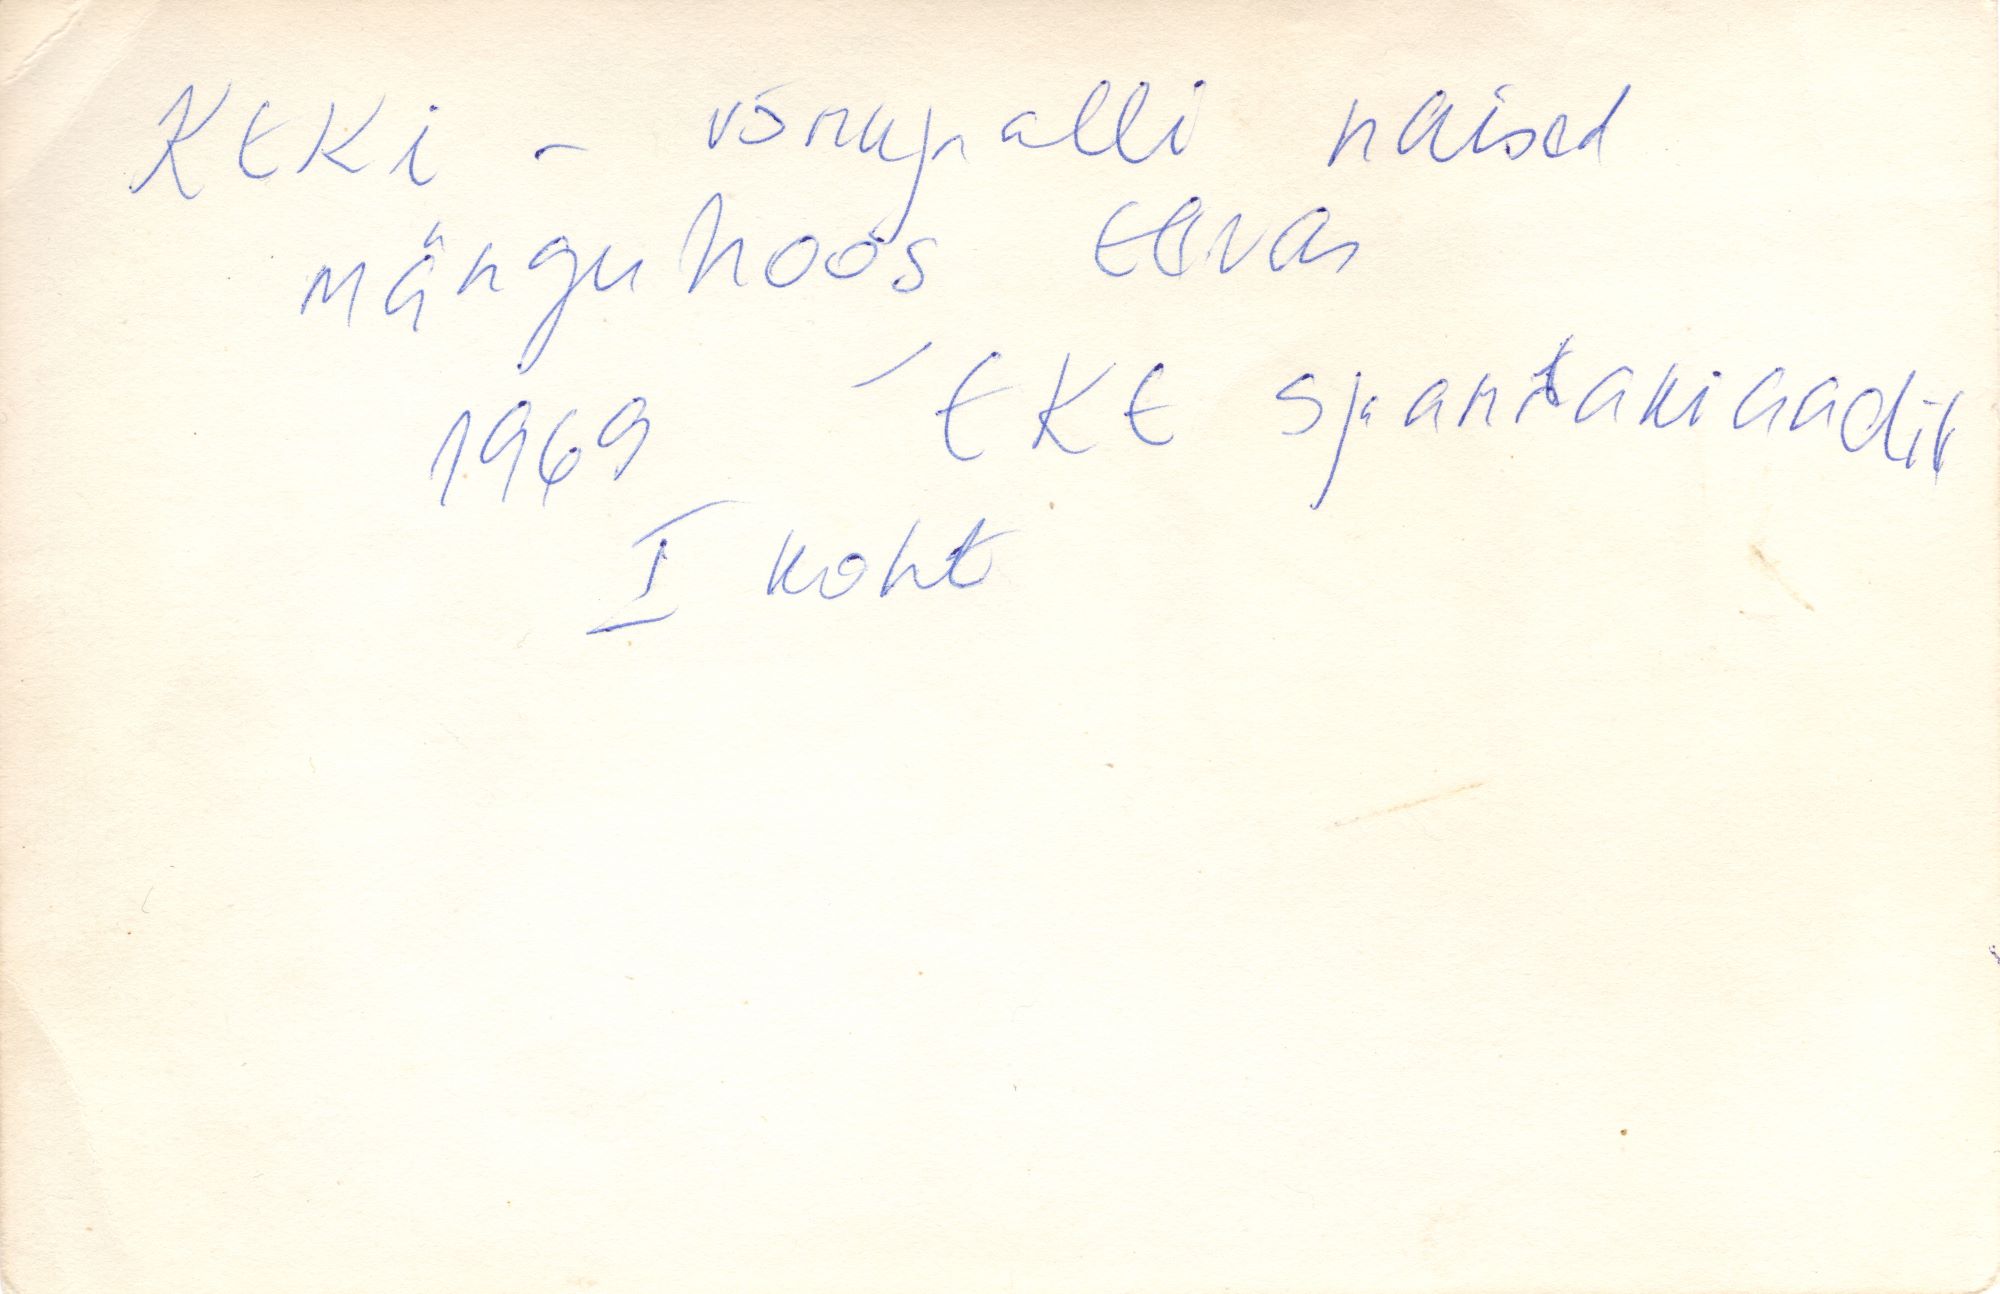 KEKi - võrkpalli naised
mänguhoos Elvas
1969 EKE spartakiaadil
I koht